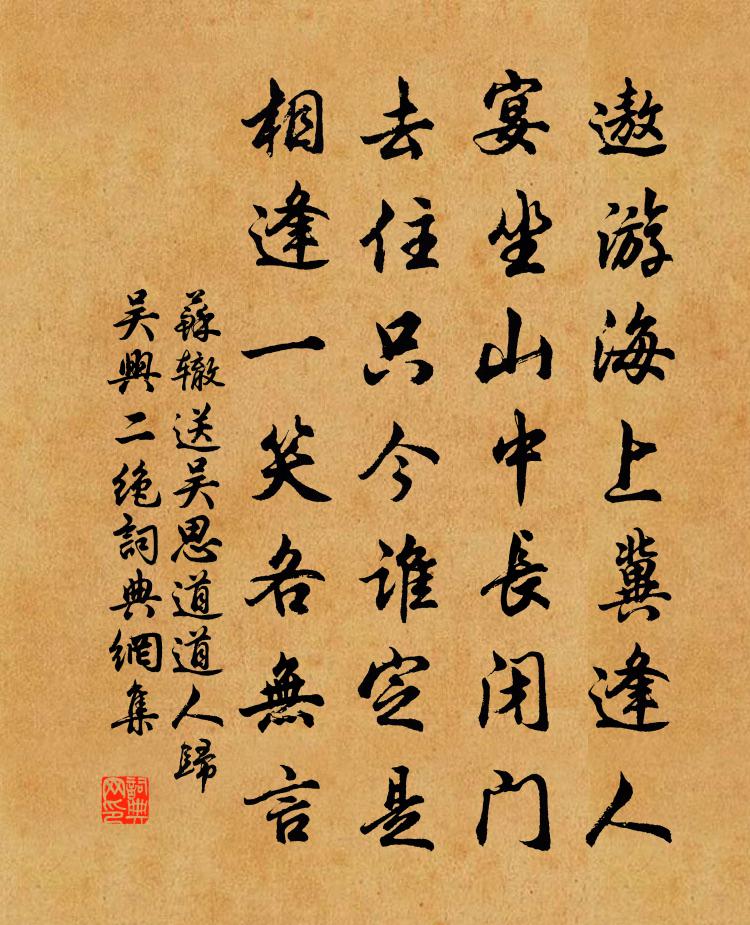 遨游海上冀逢人
宴坐山中長闭门
去住只今谁定是
相逢一笑各無言
蘇辙送吴思道道人歸
吴興二绝詞典網集
詞典
网印